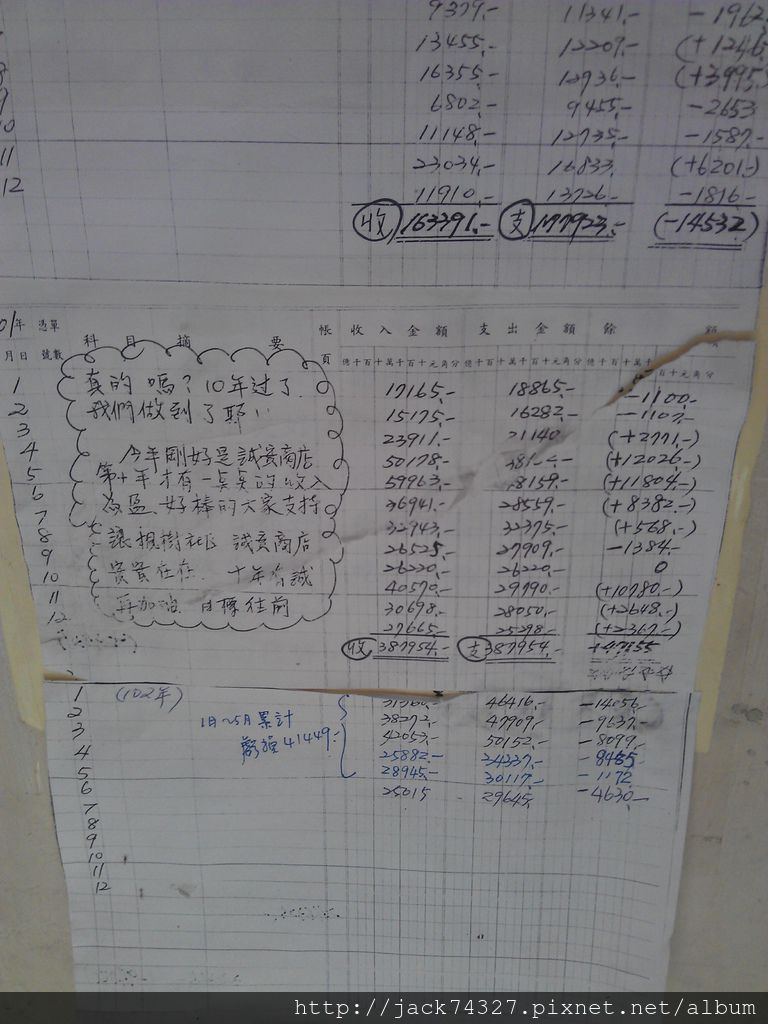 9379.- 11341.- -1962.
13455.- 12209.- (+1246
16355.- 12936.- (+3995
9 6802.- 9455.- -2653
10 11148.- 12735.- -1587.-
11 23034.- 16833. (+6201.-)
12 11910.- 13726.- -1816.-
收 163391.- 支 177923.- (-14532)
年 憑單 科目摘要 帳 收入金額 支出金額 餘額
月日 號數 頁 億千百十萬千百十元角分 億千百十萬千百十元角分 億千百十萬千 百十元角分
真的嗎?10年过了
我們做到了耶!!
今年剛好是誠實商店
第十年才有一點點的收入
為盈.好棒的大家支持
讓楓樹社區 誠實商店
實實在在. 十年有誠
再加油 目標往前
1 17165.- 18865.- -1100.-
2 15175.- 16282.- -1107.-
3 23911.- 21140 (+2771.-)
4 50178.- (+12026.-)
5 59963.- 8159.- (+11804.-)
6 36941.- 28559.- (+8382.-)
7 32943.- 32375.- (+568.-)
8 26525.- 27909.- -1384.-
9 26220.- 26220.- 0
10 40570.- 29790.- (+10780.-)
11 30698.- 28050.- (+2648.-)
12 27665.- 25298.- (+2367.-)
收 387954.- 支 387954.-
(102年)
1日~5月累計
虧損41449.-
1 46416.- -14056.-
2 38272.- 47909.- -9637.-
3 42053.- 50152.- -8099.-
4 25882.- 34337.- -8485.-
5 28945.- 30117.- -1172
6 25015 29645. -4630.-
7
8
9
10
11
12
http://jack74327.pixnet.net/album